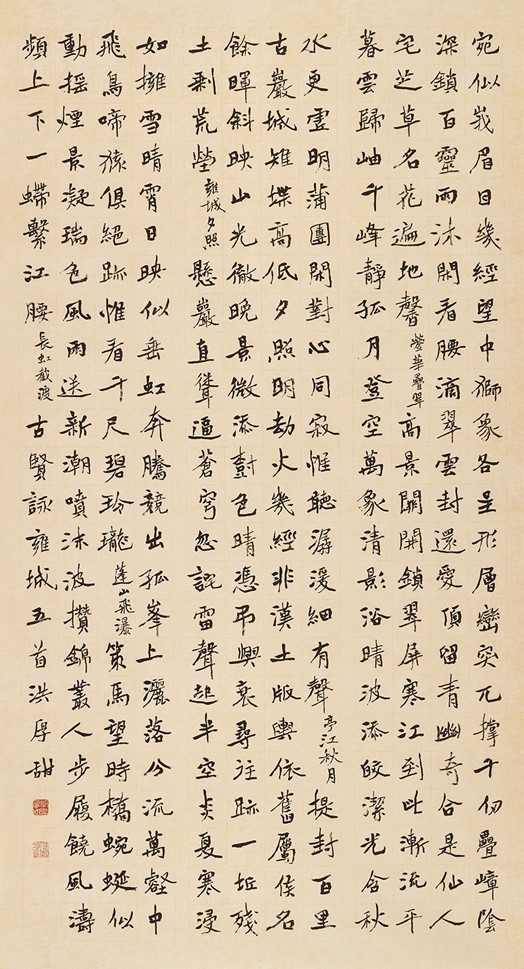 宛似峩眉日幾經望中獅象各呈形層巒突兀撐千仞疊嶂陰
深鎖百靈雨沐開看腰滴翠雲封還愛頂留青幽奇合是仙人
宅芝草名花遍地馨鎣華疊翠高景關開鎖翠屏寒江到此漸流平
暮雲歸岫千峰靜孤月登空萬象清影浴晴波添皎潔光含秋
水更虛明蒲團閑對心同寂惟聽潺湲細有聲亭江秋月提封百里
古巖城雉堞高低夕照明劫火幾經非漢土版輿依舊屬侯名
餘暉斜映山光徹晚景微添樹色晴憑弔興衰尋往跡一坵殘
土剩荒塋雍城夕照懸巖直聳逼蒼穹忽訝雷聲起半空炎夏寒浸
如擁雪晴霄日映似垂虹奔騰競出孤峯上灑落分流萬壑中
飛鳥啼猿俱絕跡惟看千尺碧玲瓏蓬山飛瀑策馬望時橋蜿蜒似
動搖煙景凝瑞色風雨送新潮噴沫波攢錦叢人步履饒風濤
頻上下一螮繫江腰長虹截波古賢詠雍城五首洪厚甜